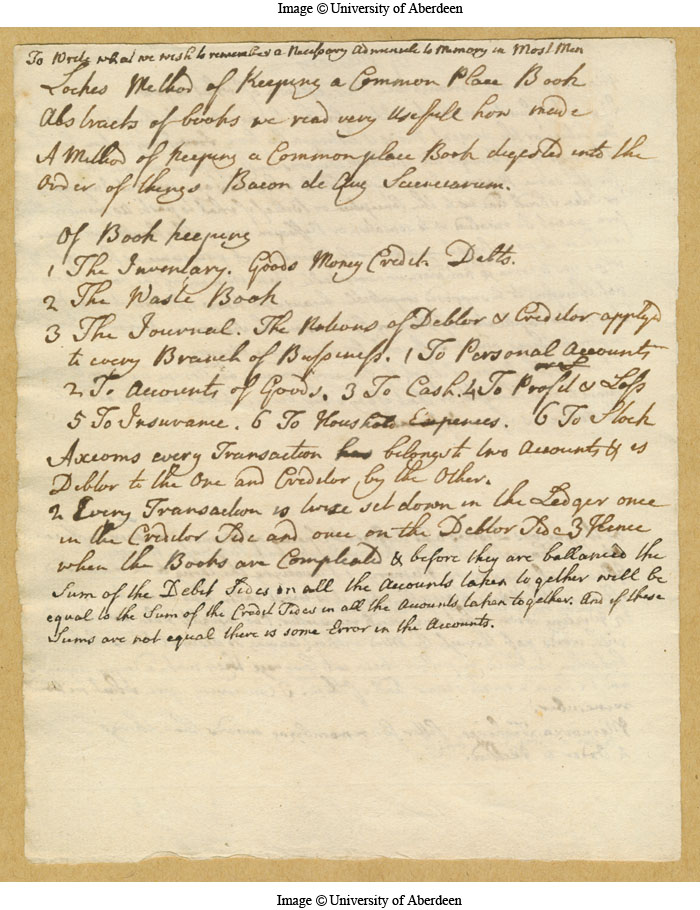 Image © University of Aberdeen
To Write what we wish to remember a Necessary Adminicle to Memory in Most Men
Lockes Method of Keeping a Common Place Book
Abstracts of books we read very usefull how made
A Method of keeping a Commonplace Book digested into the
Order of things Bacon de Aug Scienciarum.
Of Book keeping
1 The Inventary. Goods Money Credit. Debts.
2 The Waste Book
3 The Journal. The Notions of Debtor & Creditor applyed
to every Branch of Bussiness. 1 To Personal Accounts
2 To Accounts of Goods. 3 To Cash. 4 To Profit & Loss
5 To Insurance. 6 To Houshold Expences. 6 To Stock
Axioms every Transaction belongs to two Accounts & is
Debtor to the One and Creditor by the Other.
2 Every Transaction is twice set down in the Ledger once
in the Creditor Side and once on the Debtor Side 3 Hence
when the Books are Compleated & before they are ballanced the
Sum of the Debit Sides in all the Accounts taken together will be
equal to the Sum of the Credit Sides in all the Accounts taken together. And if these
Sums are not equal there is some Error in the Accounts.
Image © University of Aberdeen